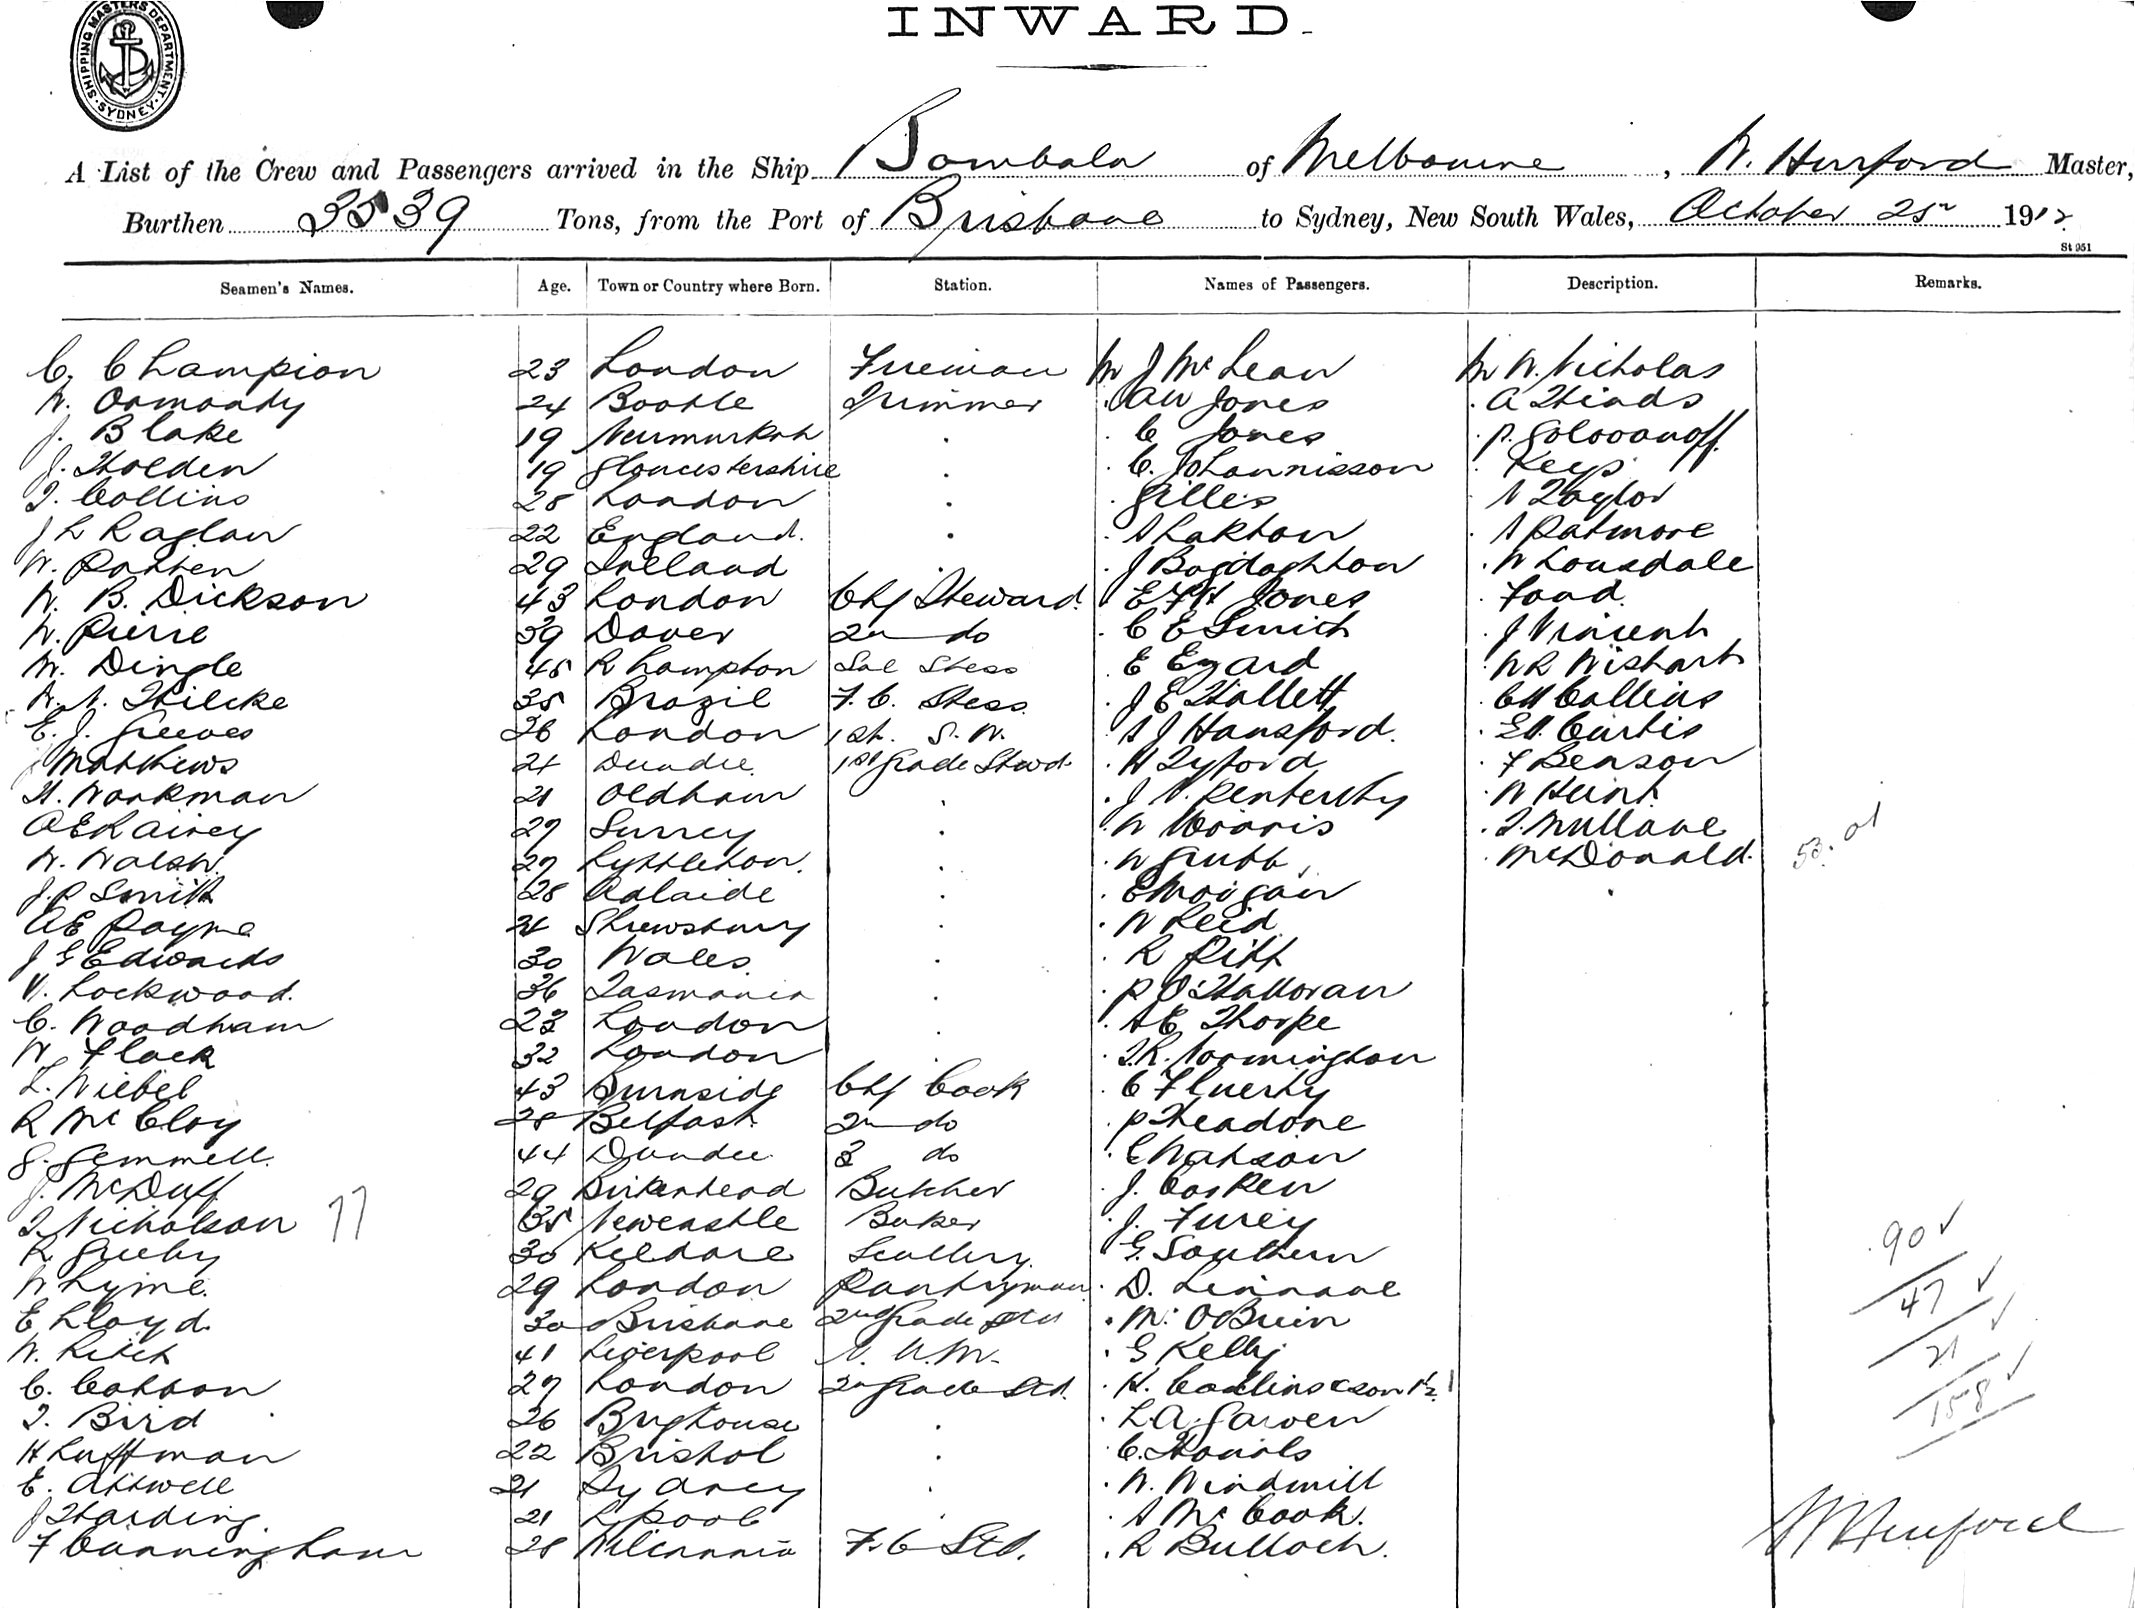 SHIPPING MASTERS DEPARTMENT. SYDNEY.
INWARD.
A List of the Crew and Passengers arrived in the Ship Bombala of Melbourne, W. Hurford Master,
Burthen 3539 Tons, from the Port of Brisbane to Sydney, New South Wales, October 25 1912
St 951
Seamen's Names. Age. Town or Country where Born. Station. Names of Passengers. Description. Remarks.
C. Champion 23 London Fireman Mr J McLean Mr W. Nicholas
W. Ormandy 24 Bootle Trimmer . AW Jones . A Hinds
J. Blake 19 . . C Jones . P. Golovanoff
J. Holden 19 Gloucestershire . . C. Johannisson . Keys
T. Collins 28 London . . Gilles . A Taylor
J L Raglan 22 England. . . A Lakton . A Patmore
W. Patten 29 Ireland . . J . W Lonsdale
W. B. Dickson 43 London Chf Steward. . E F H Jones . Foad.
W. Pirrie 39 Dover 2n do . C E Smith . J Vincent
W. Dingle 45 Rhampton Sal Stess . E Ezard . W R Wishart
W. A. Hilcke 35 Brazil F. C. Stess . J E Hallett . C H Collins
E. J. Greeves 26 London 1st. S. W. . A J Hansford. . E A. Curtis
J Matthews 21 Dundee 1st Grade Stwd. . H Tyford . F Benson
H. Workman 21 Oldham . . J . W Hunt
A E Rainey 27 Surrey . . W Morris . T. Mullane
W. Walsh. 27 Lyttleton. . . W Grubb . McDonald. 53.
J. P Smith 28 Adelaide . . E Morgan .
A E Payne 21 Shrewsbury . . W Reid
J G Edwards 30 Wales . . R Pitt
V. Lockwood. 36 Tasmania . . P O'Halloran
C. Woodham 23 London . . A E Thorpe
W. Flack 32 London . . T. R. Normington
L. Niebel 43 Burnside Chf Cook . C Fluerty
R McCloy 28 Belfast. 2n do . P Theadore
G. Gemmell. 44 Dundee 3 do . C Watson
J. McDuff 29 Birkenhead Butcher . J. Corken
T. Nicholson 77 35 Newcastle Baker . J. Furey
R. Greehy 30 Kildare Scullery. . G. Southern 90 ✓
W Lyme. 29 London Pantryman . D. Linnane 47 ✓
E Lloyd. 30 Brisbane 2nd Grade Std . M. O'Brien 21 ✓
W. Kitch 41 Liverpool . G Kelly 158 ✓
C. Cotton 27 London 2n Grade Std. . H. Collins & son 1/2. 1
T. Bird 26 Brighouse . . L. A. Garven
H Luffman 22 Bristol . . C.
E. Attwell 21 Sydney . . W. Windmill
J Harding. 21 Lpool . . A McCook.
F Cunningham 28 Wilcannia F. C Std. . R Bulloch.
W Hurford